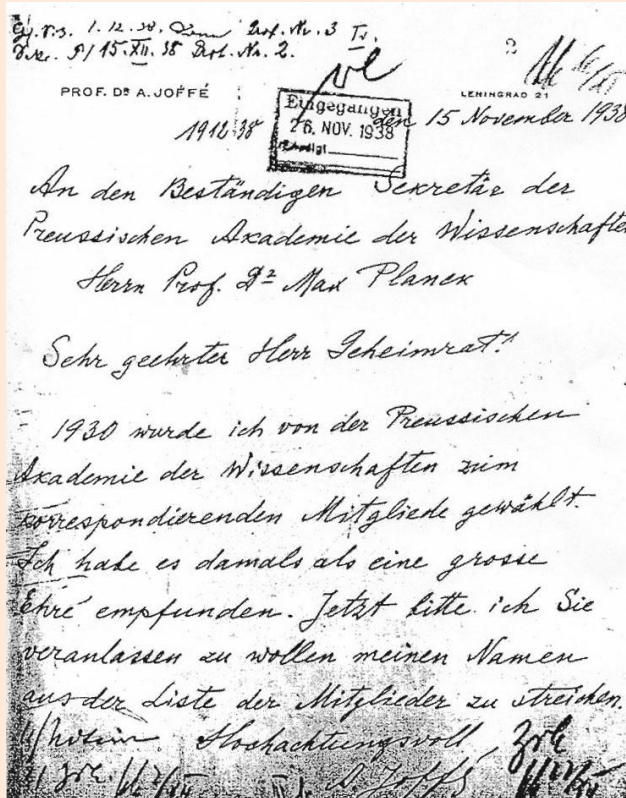 1.12.38. Prot. Nr. 3
15.XII.38 Prot. Nr. 2.
2
PROF. DR A. JOFFÉ
LENINGRAD 21
Eingegangen
26. NOV. 1938
Erledigt
den 15 November 1938
1912 38
An den Beständigen Sekretär der
Preussischen Akademie der Wissenschaften
Herrn Prof. Dr Max Planck
Sehr geehrter Herr Geheimrat!
1930 wurde ich von der Preussischen
Akademie der Wissenschaften zum
korrespondierenden Mitgliede gewählt.
Ich habe es damals als eine grosse
Ehre empfunden. Jetzt bitte ich Sie
veranlassen zu wollen meinen Namen
aus der Liste der Mitglieder zu streichen.
Hochachtungsvoll
A. Joffé